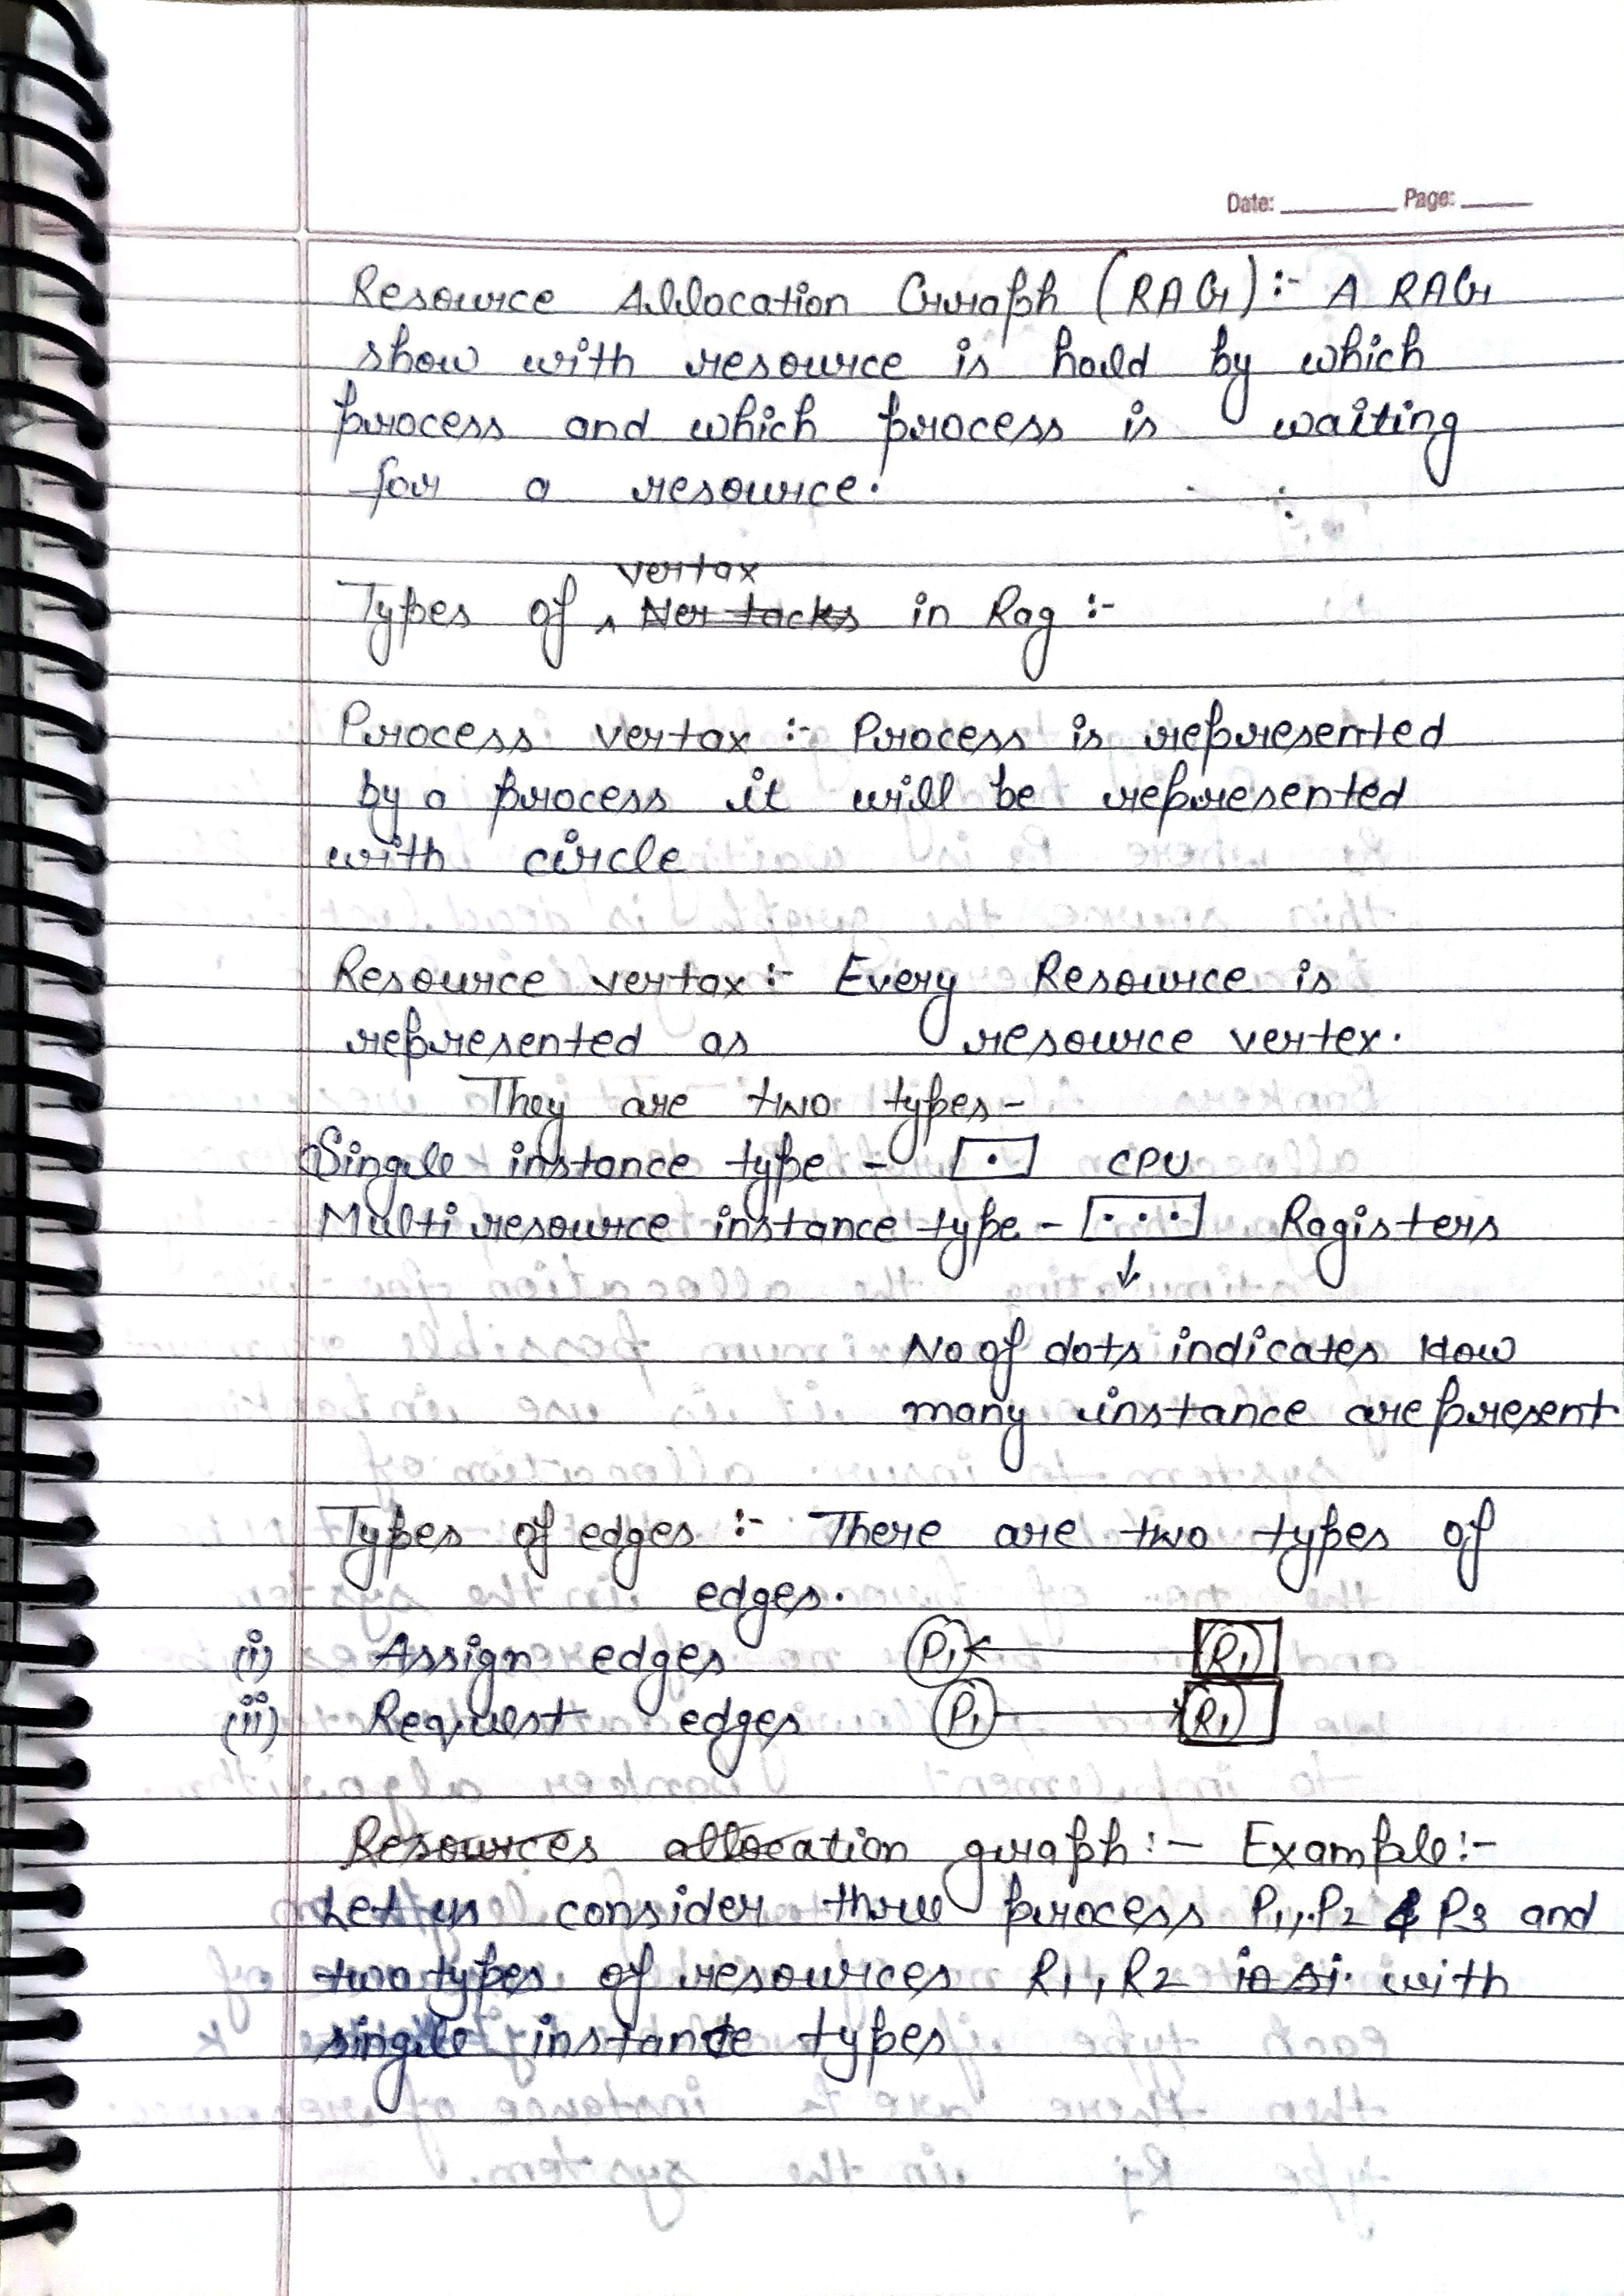 Date: Page:
Resource Allocation Graph (RAG) :- A RAG
show with resource is hold by which
process and which process is waiting
for a resource.
vertax
Types of Ner tacks in Rag :-
Process vertax :- Process is represented
by a process it will be represented
with circle
Resource vertax :- Every Resource is
represented as resource vertex.
They are two types -
Single instance type - [ . ] CPU
Multi resource instance type - [ . . . ] Ragisters
↓
No of dots indicates How
many instance are present
Types of edges :- There are two types of
edges.
(i) Assign edges P1 ← R1
(ii) Request edges P1 → R1
Resources allocation graph :- Example :-
Let us consider three process P1, P2 & P3 and
two types of resources R1, R2 with
single instance types